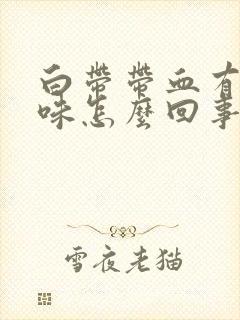 白帶帶血有
味怎麼回事
雪夜老猫